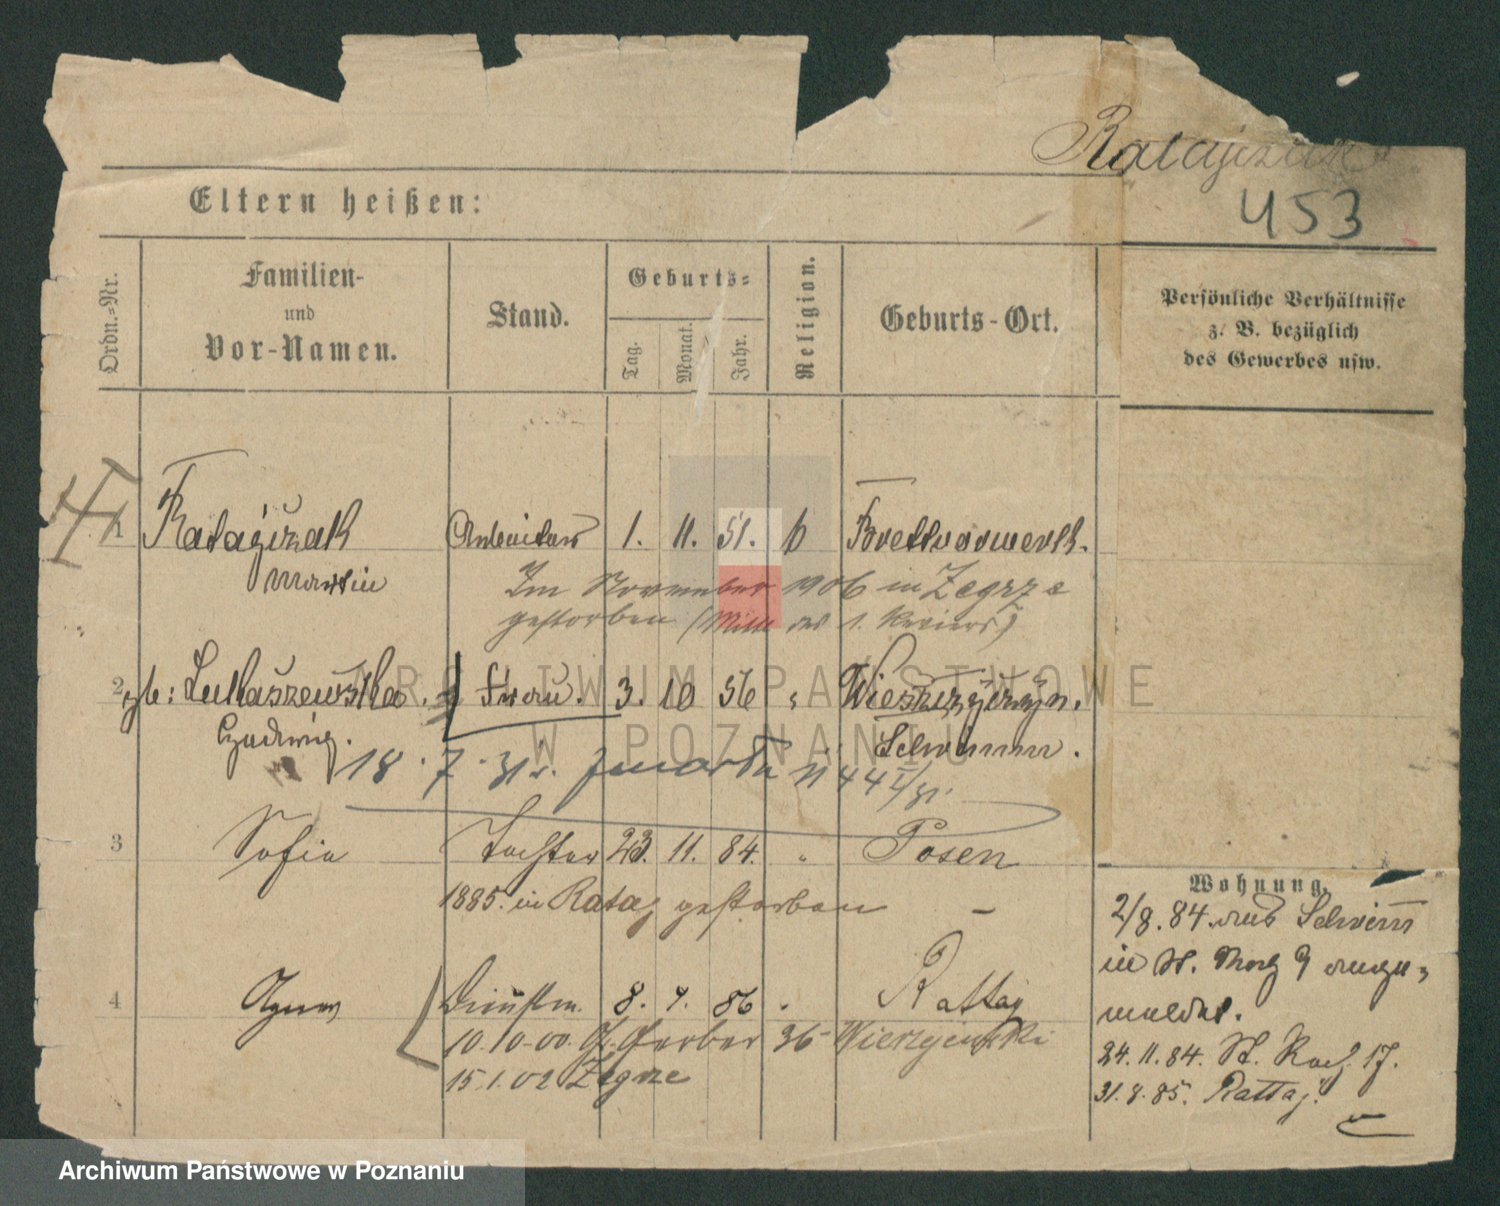 Ratajczak
453
Eltern heißen:
Ordn.-Nr.
Familien-
und
Vor-Namen.
Stand.
Geburts-
Tag.
Monat.
Jahr.
Religion.
Geburts-Ort.
Persönliche Verhältnisse
z. B. bezüglich
des Gewerbes usw.
1 Ratajczak Arbeiter 1. 11. 51. k Brettvorwerk.
Martin
Im November 1906 in Zegrze
gestorben (Mitth. des 1. Reviers)
2 gb: Lukaszewska. Frau. 3. 10 56 "
Hedwig. Schrimm.
18. 7. 31
3 Sofia Tochter 23. 11. 84. " Posen
1885. in Rataj gestorben –
4 Agnes Dienstm. 8. 1. 86 " Rattaj
10.10.00. Gr. Gerber 36 Wierzejewski
15.1.02 Zegrze
Wohnung.
2/8. 84. aus Schrimm
in St. 9 ange-
meldet.
24.11.84. St. Roch 17.
31.8.85. Rattaj.
ARCHIWUM PAŃSTWOWE
W POZNANIU
Archiwum Państwowe w Poznaniu